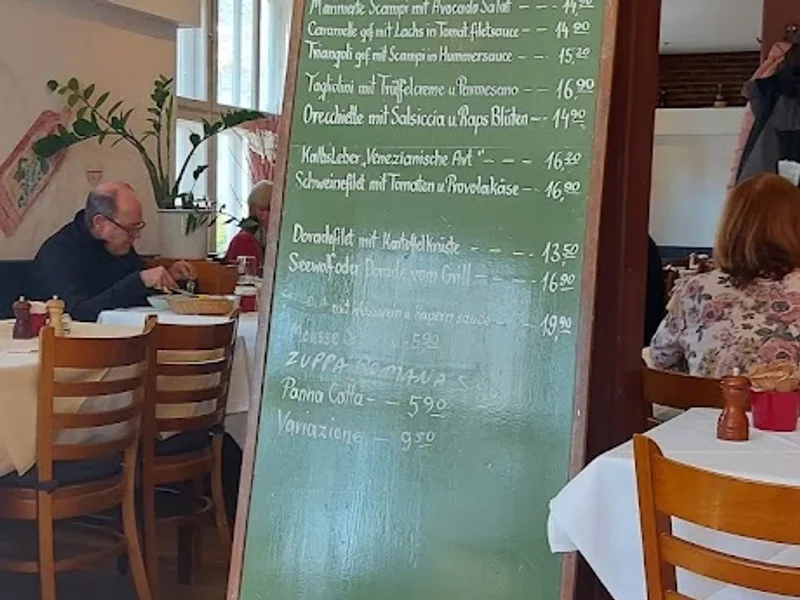 Marinierte Scampi mit Avocado Salat - 14,90
Caramelle gef. mit Lachs in Tomat.filetsauce - 14,90
Triangoli gef. mit Scampi in Hummersauce - - 15,20
Tagliolini mit Trüffelcreme u. Parmesano - - 16,90
Orecchiette mit Salsiccia u. Raps Blüten - - 14,90
Kalbsleber „Venezianische Art" - - - 16,20
Schweinefilet mit Tomaten u. Provolakäse - - 16,90
Doradefilet mit Kartoffelkruste - - - 13,50
Seewolf oder Dorade vom Grill - - - 16,90
mit u. Kapern sauce - - 19,90
Mousse - 5,90
ZUPPA ROMANA 5
Panna Cotta - - 5,90
Variazione - 9,50